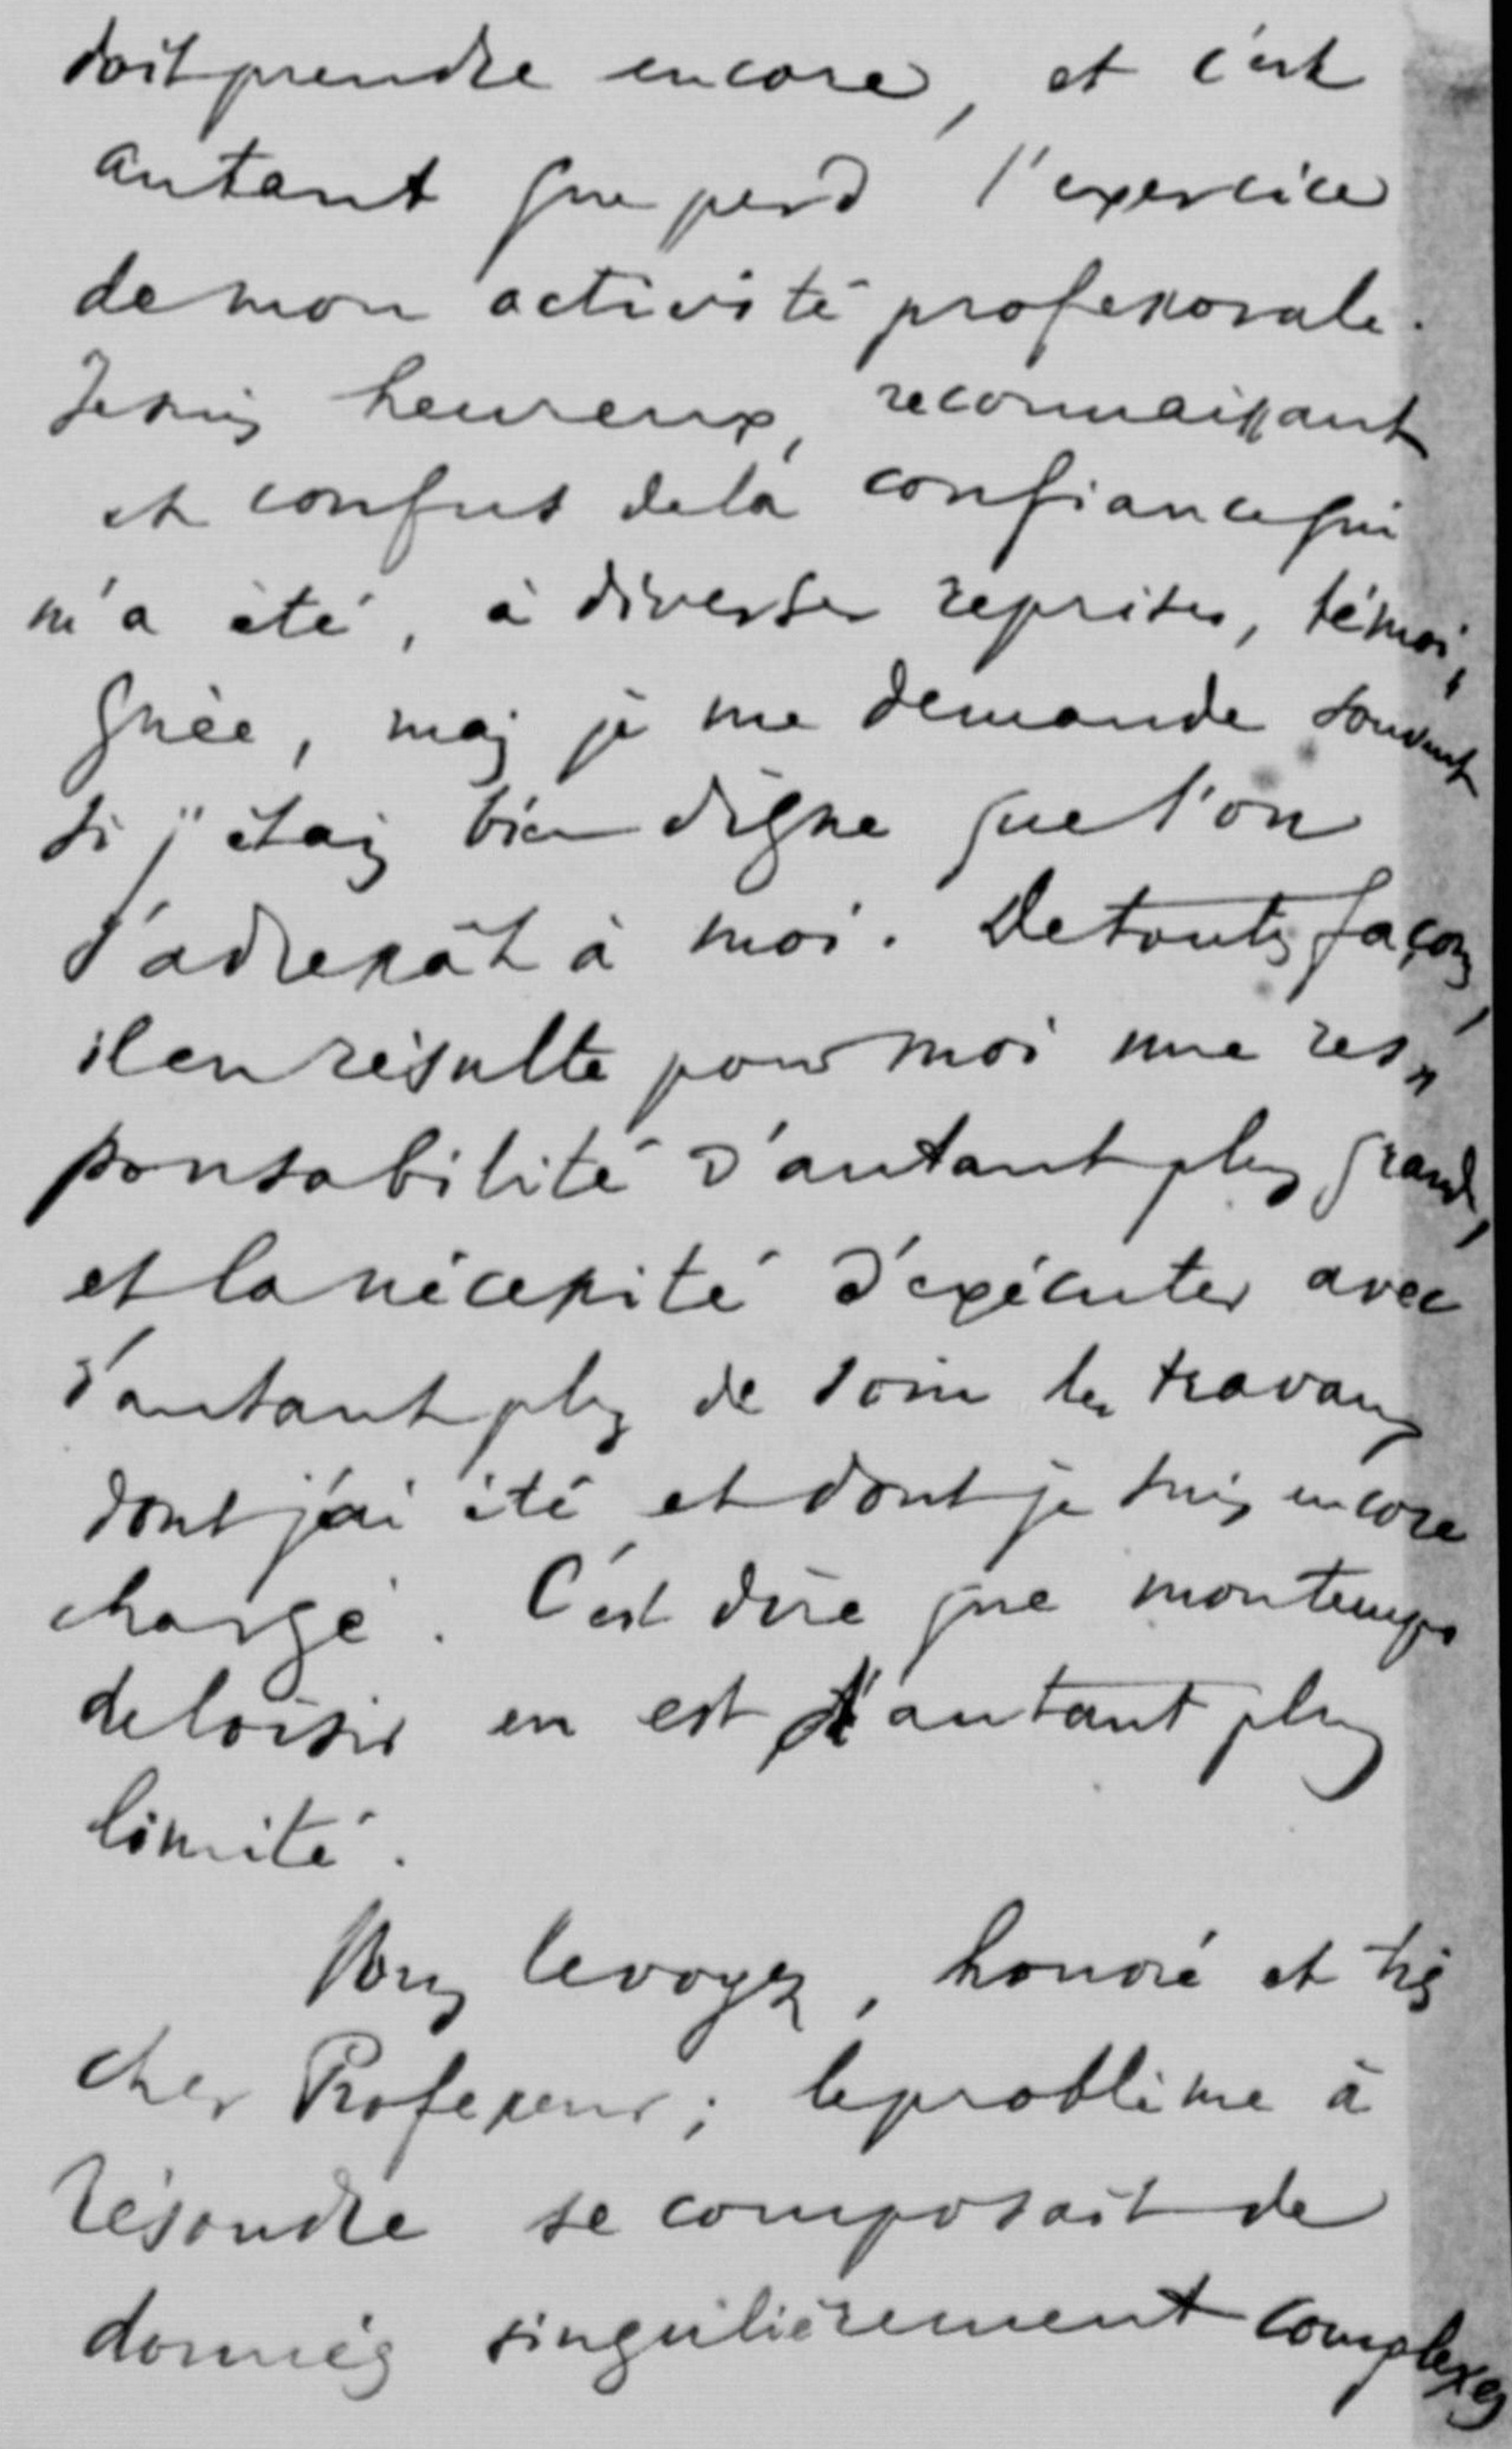 doit prendre encore, et c'est
autant que perd l'exercice
de mon activité professorale.
Je suis heureux, reconnaissant
et confus de la confiance qui
m'a été, à diverses reprises, témoi-
gnée, mais je me demande souvent
si j'étais bien digne que l'on
s'adressât à moi. De toutes façons,
il en résulte pour moi une res-
ponsabilité d'autant plus grande,
et la nécessité d'exécuter avec
d'autant plus de soin les travaux
dont j'ai été et dont je suis encore
chargé. C'est dire que mon temps
de loisir en est d'autant plus
limité.
Vous le voyez, honoré et très
cher Professeur ; le problème à
résoudre se composait de
données singulièrement complexes